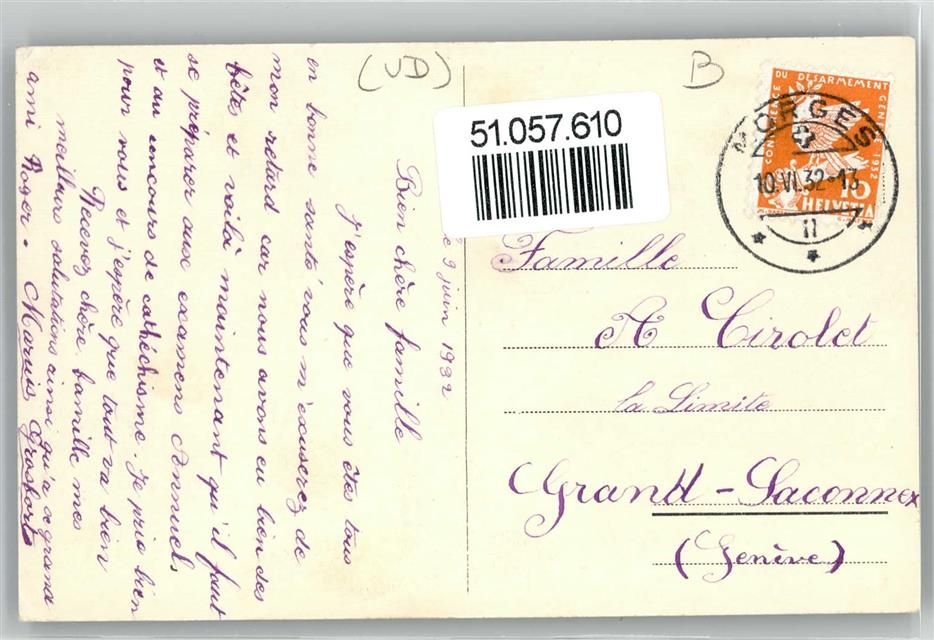 (VD)
B
51.057.610
CONFÉRENCE DU DÉSARMEMENT GENÈVE 1932
HELVETIA
MORGES
10.VI.32-13
II
9 juin 1932
Bien chère famille
J'espère que vous êtes tous
en bonne santé vous m'excuserez de
mon retard car nous avons eu bien des
fêtes et voilà maintenant qu'il faut
se préparer aux examens Annuels
et au concours de cathéchisme. Je prie bien
pour vous et j'espère que tout va bien
Recevez chère famille mes
meilleurs salutations ainsi qu'à grand
ami Roger. Marius Grosfort
Famille
A Cirolet
la Limite
Grand-Saconnex
(Genève)